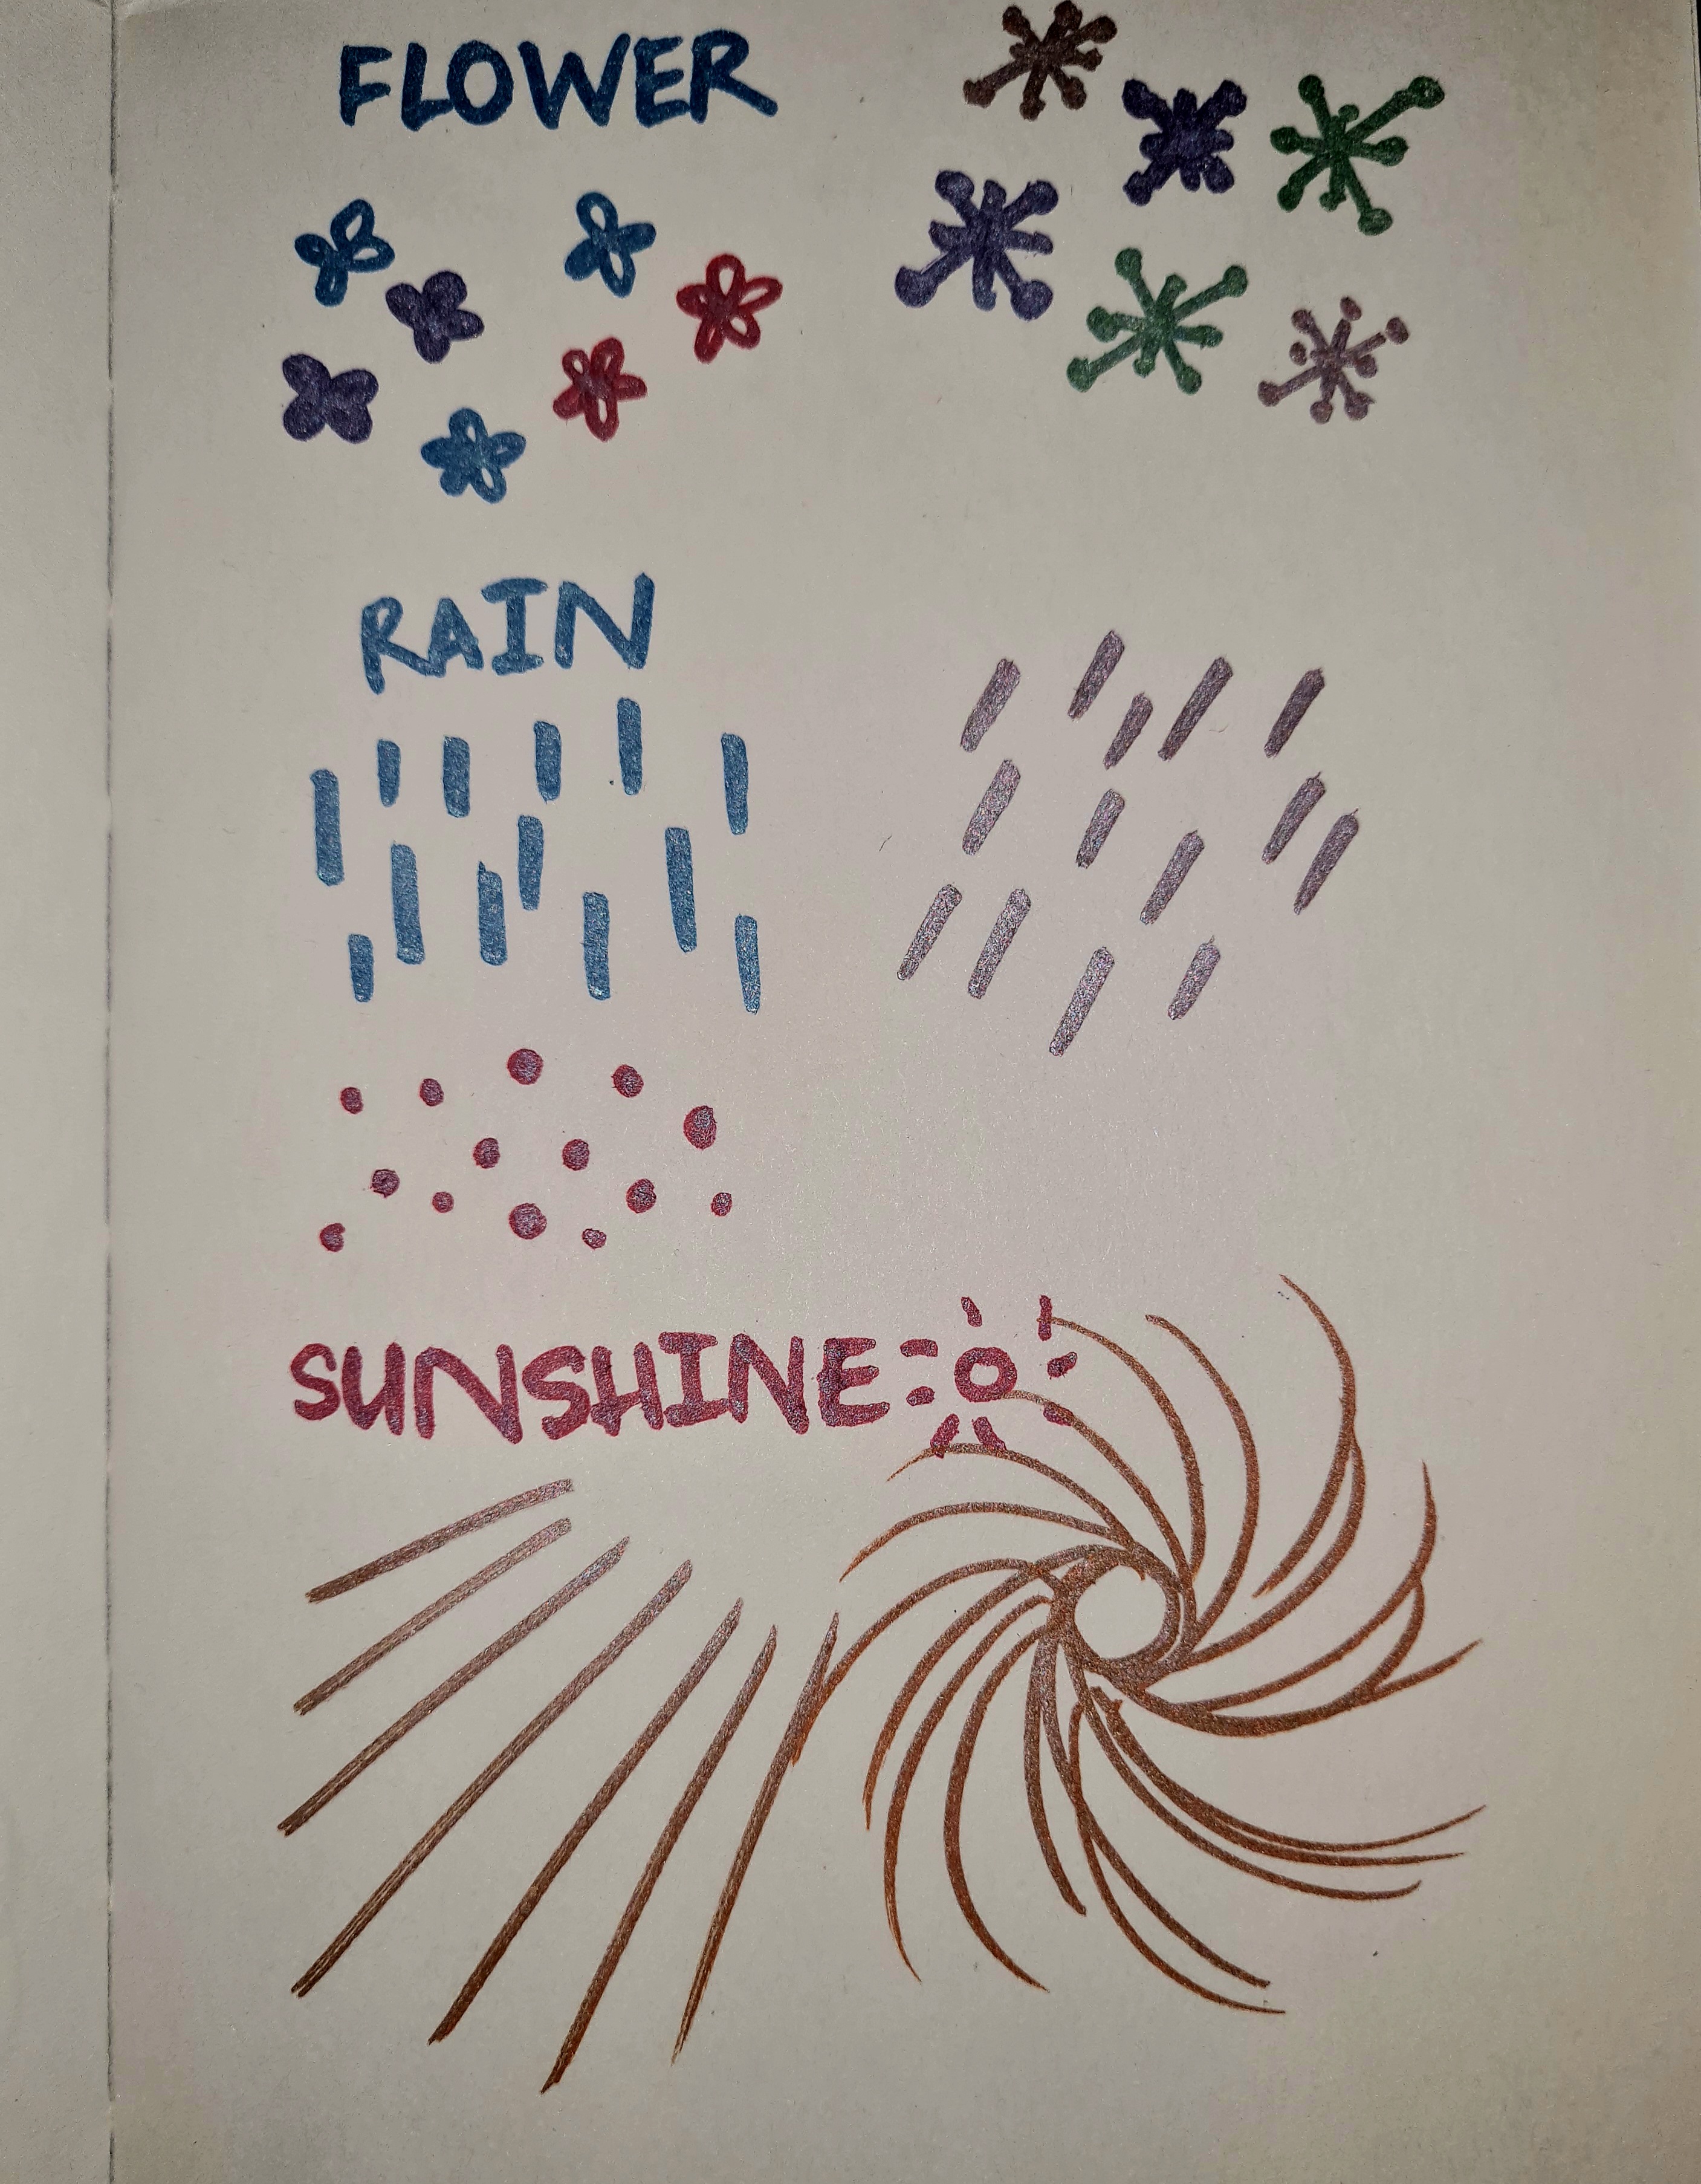 FLOWER
RAIN
SUNSHINE